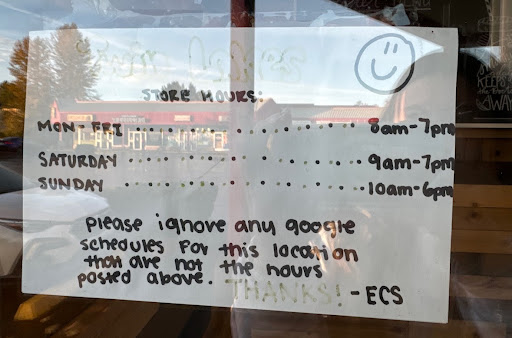 STORE HOURS:
MON-FRI .................... 8am-7pm
SATURDAY .................... 9am-7pm
SUNDAY .................... 10am-6pm
please ignore any google
schedules for this location
that are not the hours
posted above. THANKS! -ECS
KEEPS
AWAY